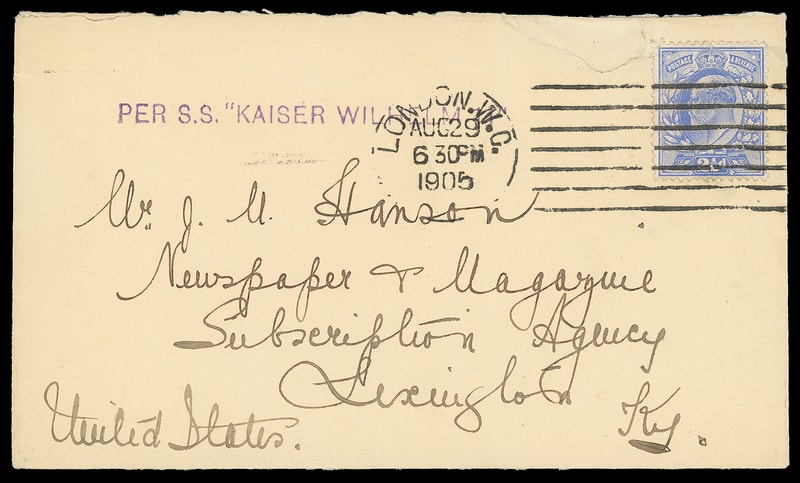 PER S.S. "KAISER WILHELM
LONDON. W.C.
AUG 29
6 30PM
1905
POSTAGE & REVENUE
2½d
Mr. J. M. Hanson
Newspaper & Magazine
Subscription Agency
Lexington
Ky.
United States.